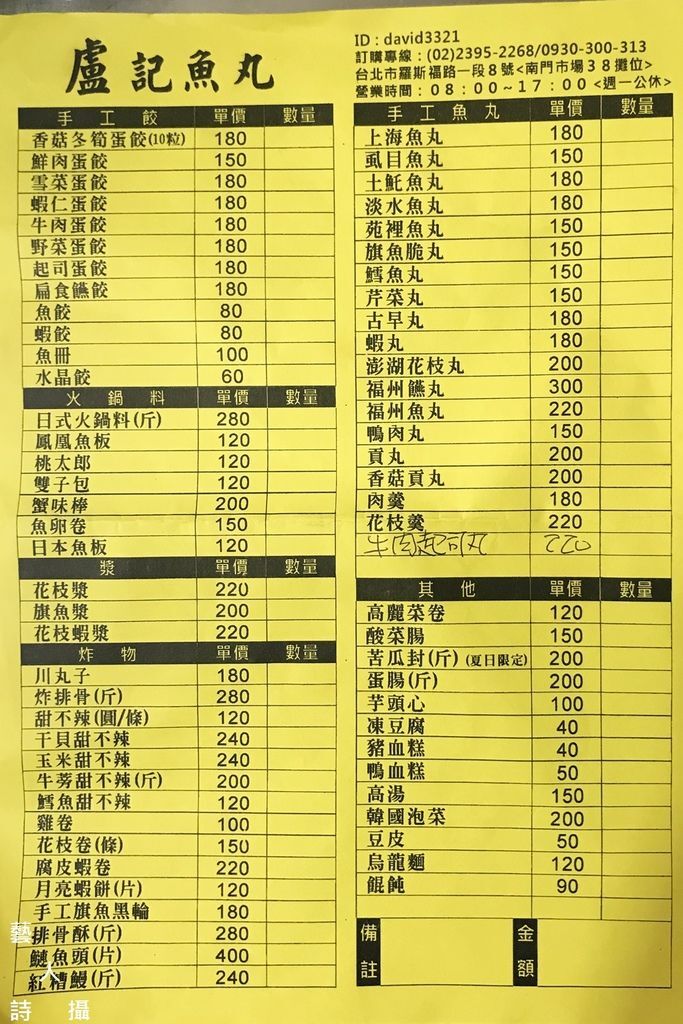 盧記魚丸
ID：david3321
訂購專線：(02)2395-2268/0930-300-313
台北市羅斯福路一段８號<南門市場３８攤位>
營業時間：０８：００～１７：００<週一公休>
手工餃 單價 數量
香菇冬筍蛋餃(10粒) 180
鮮肉蛋餃 150
雪菜蛋餃 180
蝦仁蛋餃 180
牛肉蛋餃 180
野菜蛋餃 180
起司蛋餃 180
扁食燕餃 180
魚餃 80
蝦餃 80
魚冊 100
水晶餃 60
火鍋料 單價 數量
日式火鍋料(斤) 280
鳳凰魚板 120
桃太郎 120
雙子包 120
蟹味棒 200
魚卵卷 150
日本魚板 120
漿 單價 數量
花枝漿 220
旗魚漿 200
花枝蝦漿 220
炸物 單價 數量
川丸子 180
炸排骨(斤) 280
甜不辣(圓/條) 120
干貝甜不辣 240
玉米甜不辣 240
牛蒡甜不辣(斤) 200
鱈魚甜不辣 120
雞卷 100
花枝卷(條) 150
腐皮蝦卷 220
月亮蝦餅(片) 120
手工旗魚黑輪 180
排骨酥(斤) 280
鰱魚頭(片) 400
紅糟鰻(斤) 240
手工魚丸 單價 數量
上海魚丸 180
虱目魚丸 150
土魠魚丸 180
淡水魚丸 180
苑裡魚丸 150
旗魚脆丸 150
鱈魚丸 150
芹菜丸 150
古早丸 180
蝦丸 180
澎湖花枝丸 200
福州燕丸 300
福州魚丸 220
鴨肉丸 150
貢丸 200
香菇貢丸 200
肉羹 180
花枝羹 220
牛肉起司丸 220
其他 單價 數量
高麗菜卷 120
酸菜腸 150
苦瓜封(斤)(夏日限定) 200
蛋腸(斤) 200
芋頭心 100
凍豆腐 40
豬血糕 40
鴨血糕 50
高湯 150
韓國泡菜 200
豆皮 50
烏龍麵 120
餛飩 90
備註 金額
藝人
詩攝